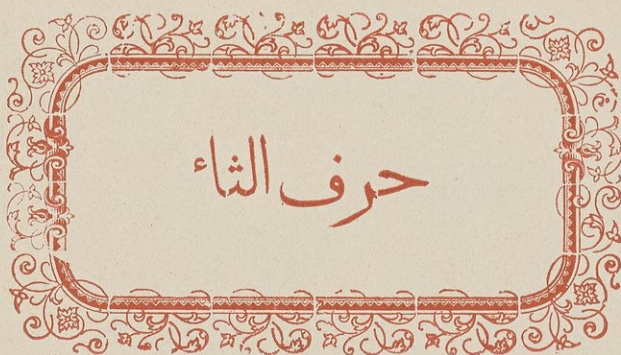 حرف الثاء